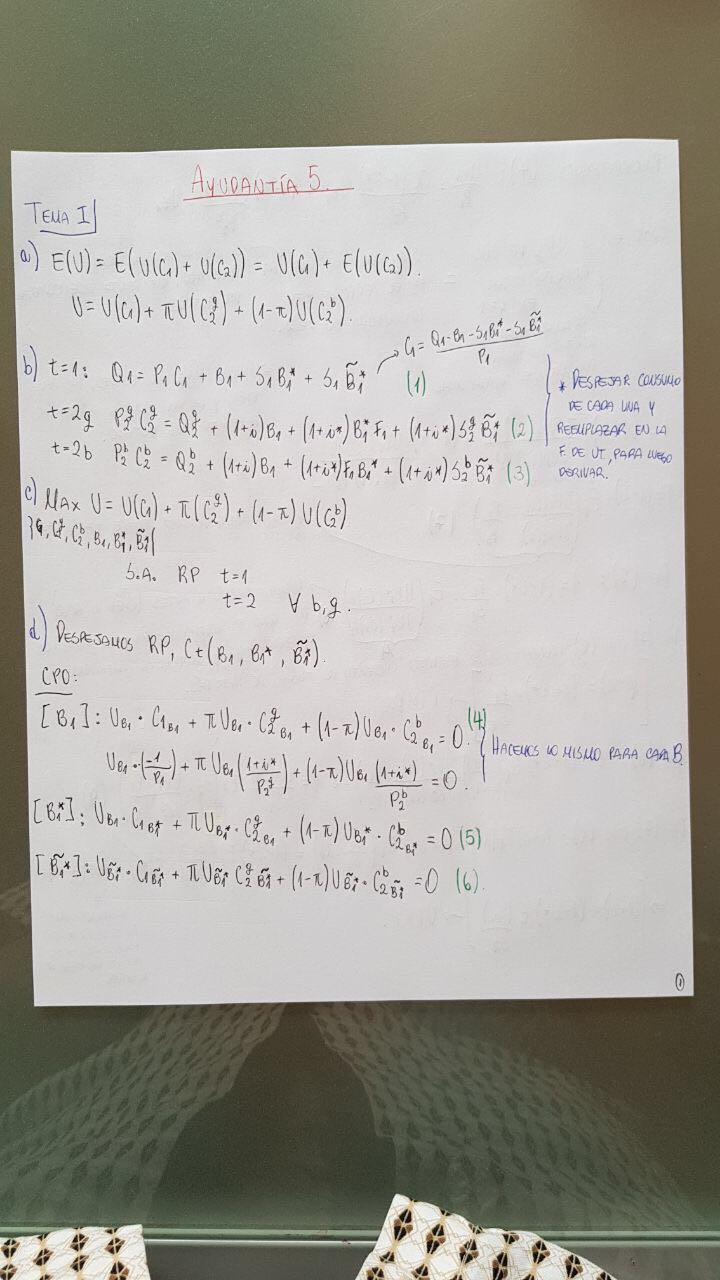 AYUDANTÍA 5.
TEMA I
a) E(U) = E(U(C₁) + U(C₂)) = U(C₁) + E(U(C₂)).
U = U(C₁) + πU(C₂ᵍ) + (1-π)U(C₂ᵇ).
C₁ = (Q₁ - B₁ - S₁B₁* - S₁B̃₁*) / P₁
b) t=1: Q₁ = P₁C₁ + B₁ + S₁B₁* + S₁B̃₁* (1)
t=2g P₂ᵍC₂ᵍ = Q₂ᵍ + (1+i)B₁ + (1+i*)B₁*F₁ + (1+i*)S₂ᵍB̃₁* (2)
t=2b P₂ᵇC₂ᵇ = Q₂ᵇ + (1+i)B₁ + (1+i*)F₁B₁* + (1+i*)S₂ᵇB̃₁* (3)
* DESPEJAR CONSUMO
DE CADA UNA Y
REEMPLAZAR EN LA
F. DE UT, PARA LUEGO
DERIVAR.
c) MAX U = U(C₁) + π(C₂ᵍ) + (1-π)U(C₂ᵇ)
{C₁, C₂ᵍ, C₂ᵇ, B₁, B₁*, B̃₁*}
S.A. RP t=1
t=2 ∀ b,g.
d) DESPEJAMOS RP, Ct(B₁, B₁*, B̃₁*).
CPO:
[B₁]: U_B₁ · C₁_B₁ + πU_B₁ · C₂ᵍ_B₁ + (1-π)U_B₁ · C₂ᵇ_B₁ = 0. (4)
U_B₁ · (-1/P₁) + πU_B₁((1+i*)/P₂ᵍ) + (1-π)U_B₁ (1+i*)/P₂ᵇ = 0.
HACEMOS LO MISMO PARA CADA B.
[B₁*]: U_B₁ · C₁_B₁* + πU_B₁* · C₂ᵍ_B₁ + (1-π)U_B₁* · C₂ᵇ_B₁* = 0 (5)
[B̃₁*]: U_B̃₁* · C₁_B̃₁* + πU_B̃₁* C₂ᵍ_B̃₁* + (1-π)U_B̃₁* · C₂ᵇ_B̃₁* = 0 (6).
1